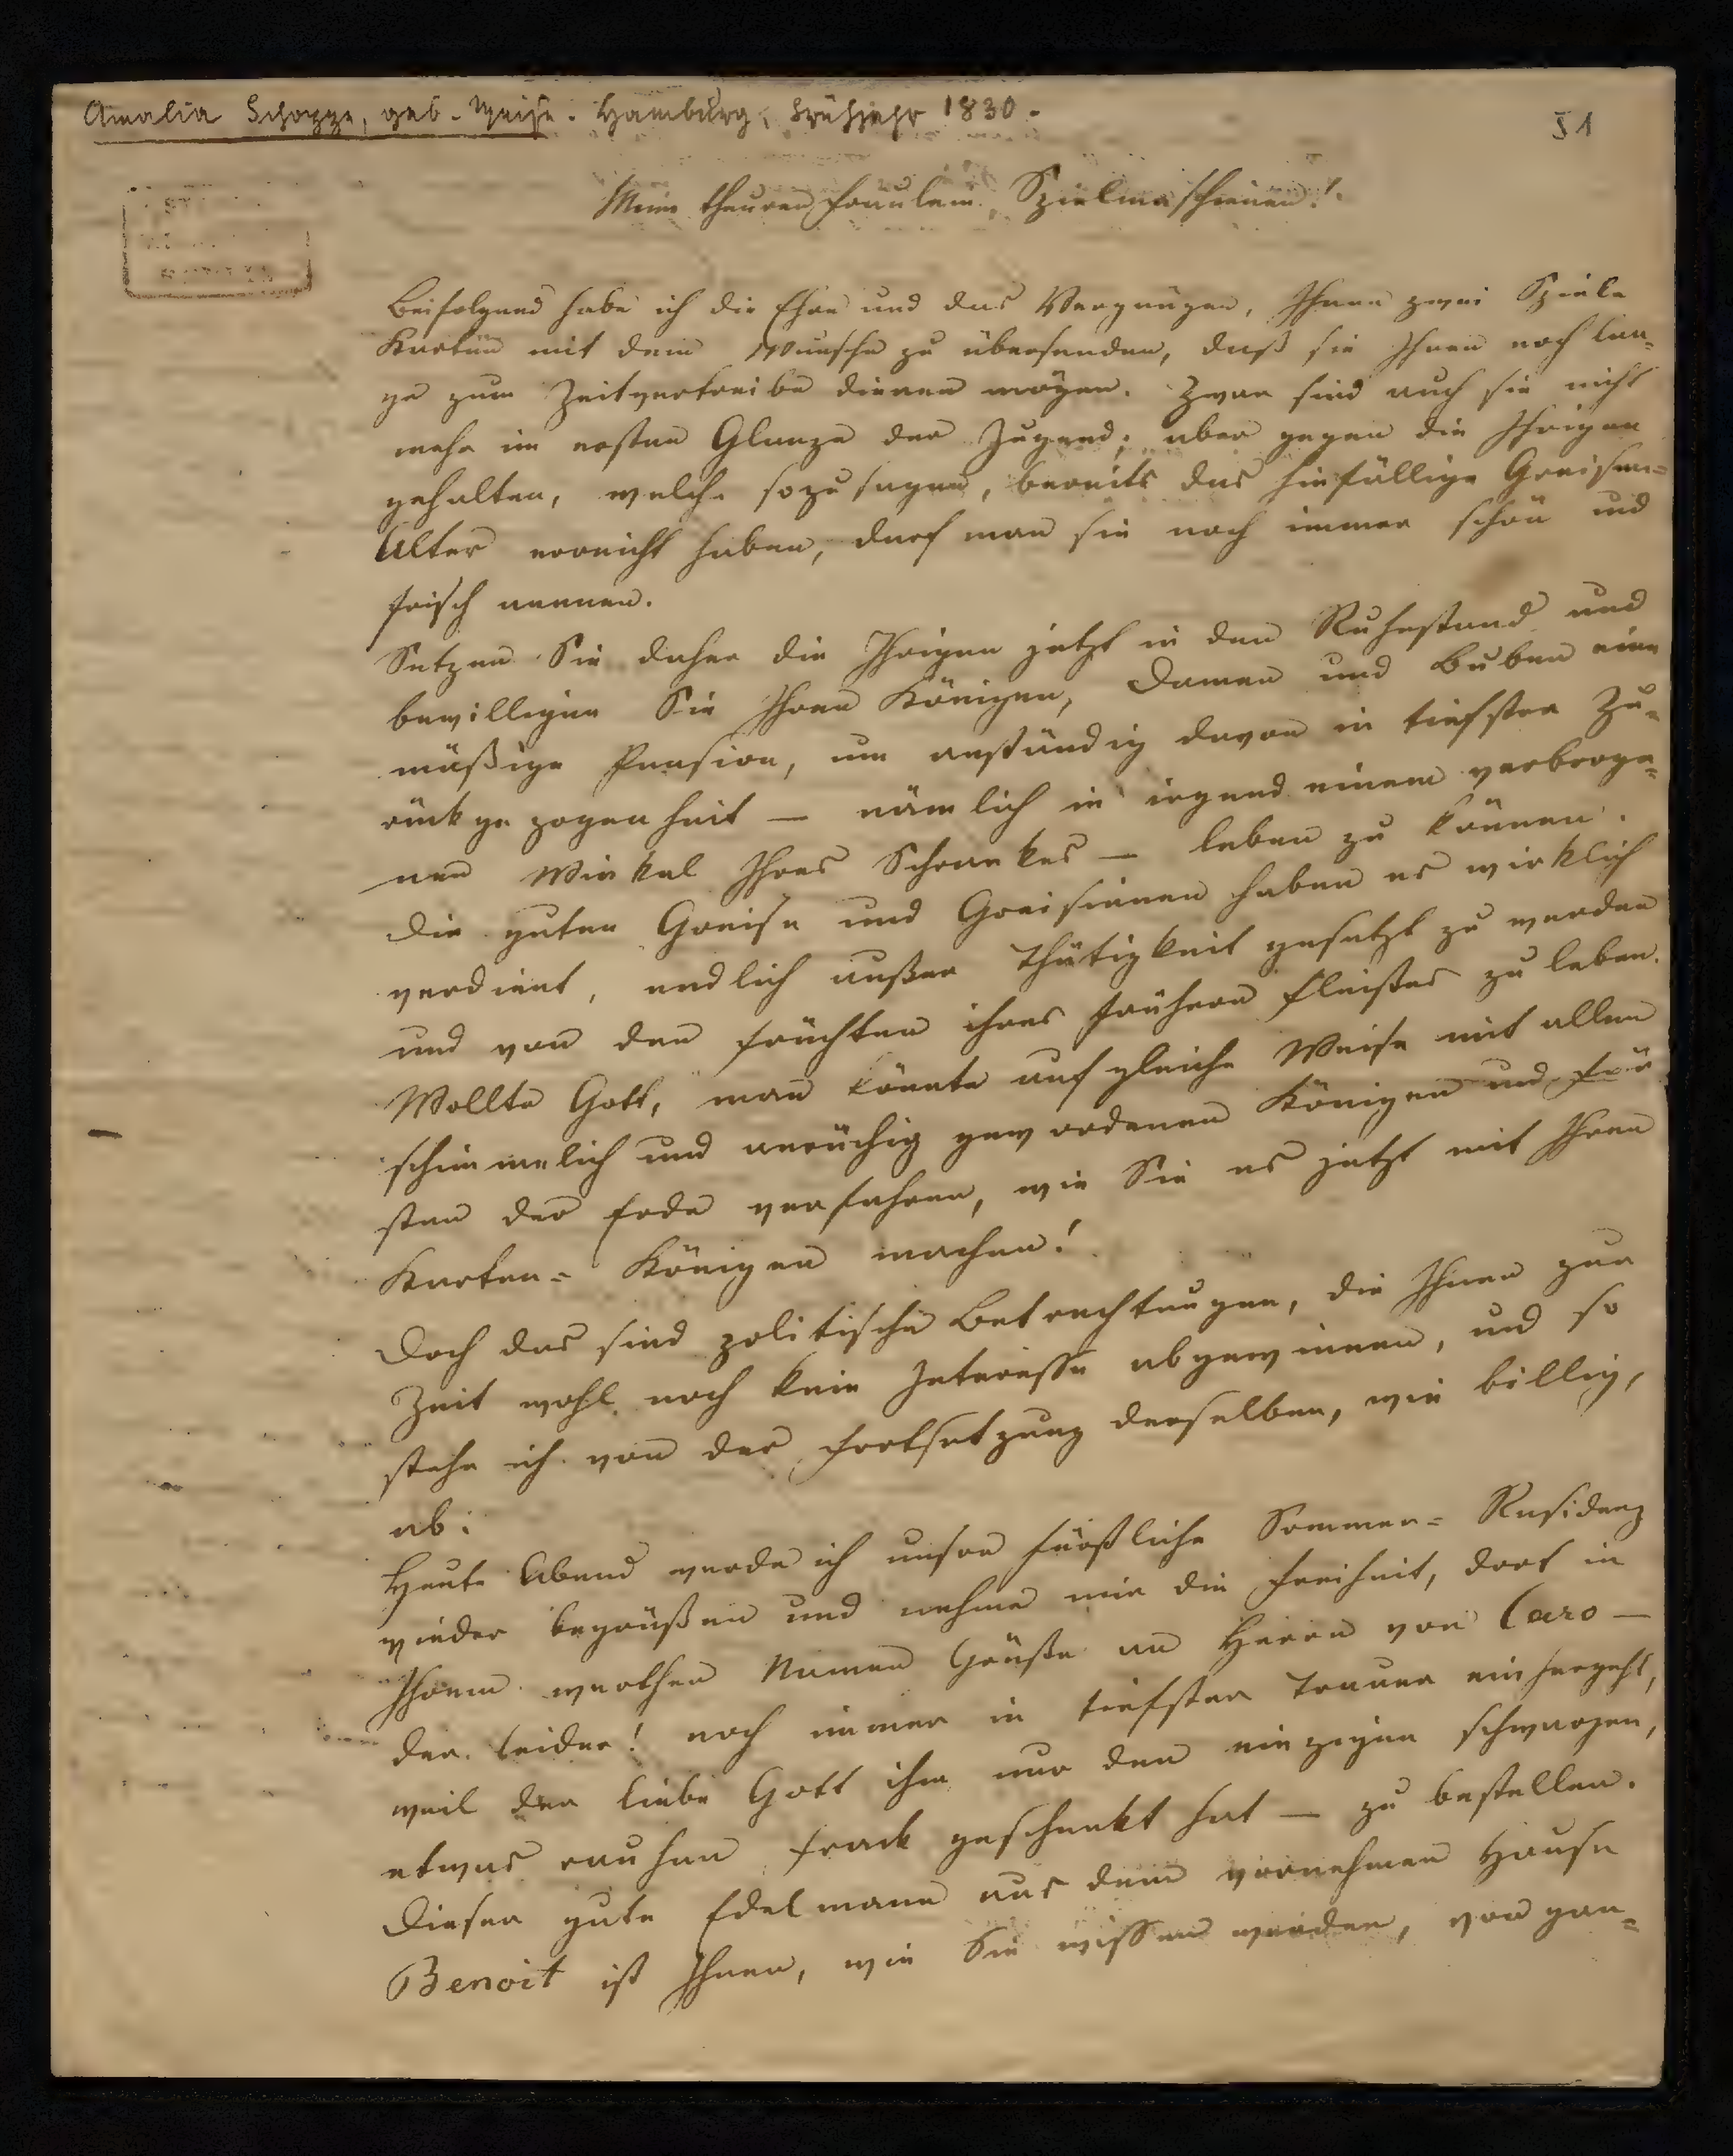 Amalia Schoppe, geb. Weise. Hamburg, Frühjahr 1830.
51
Meine theuren Fräulein Spielmaschienen!
Beifolgend habe ich die Ehre und das Vergnügen, Ihnen zwei Spiele
Karten mit dem Wunsche zu übersenden, daß sie Ihnen noch lan-
ge zum Zeitvertreibe dienen mögen. Zwar sind auch sie nicht
mehr im ersten Glanze der Jugend; aber gegen die Ihrigen
gehalten, welche sozusagen, bereits das hinfällige Greisen-
Alter erreicht haben, darf man sie noch immer schön und
frisch nennen.
Setzen Sie daher die Ihrigen jetzt in den Ruhestand und
bewilligen Sie Ihren Königen, Damen und Buben eine
mäßige Pension, um anständig davon in tiefster Zu-
rückgezogenheit — nämlich in irgend einem verborge-
nen Winkel Ihres Schrankes — leben zu können.
Die guten Greise und Greisinnen haben es wirklich
verdient, endlich außer Thätigkeit gesetzt zu werden
und von den Früchten ihres frühern Fleißes zu leben.
Wollte Gott, man könnte auf gleiche Weise mit allen
schimmelich und anrüchig gewordenen Königen und Für
sten der Erde verfahren, wie Sie es jetzt mit Ihren
Karten-Königen machen!
Doch das sind politische Betrachtungen, die Ihnen zur
Zeit wohl noch kein Interesse abgewinnen, und so
stehe ich von der Fortsetzung derselben, wie billig,
ab.
Heute Abend werde ich unsre fürstliche Sommer-Residenz
wieder begrüßen und nehme mir die Freiheit, dort in
Ihrem werthen Namen Grüße an Herrn von Caro —
der leider! noch immer in tiefster Trauer einhergeht,
weil der liebe Gott ihm nur den einzigen schwarzen,
etwas rauhen Frack geschenkt hat — zu bestellen.
Dieser gute Edelmann aus dem vornehmen Hause
Benoit ist Ihnen, wie Sie wissen werden, von gan-